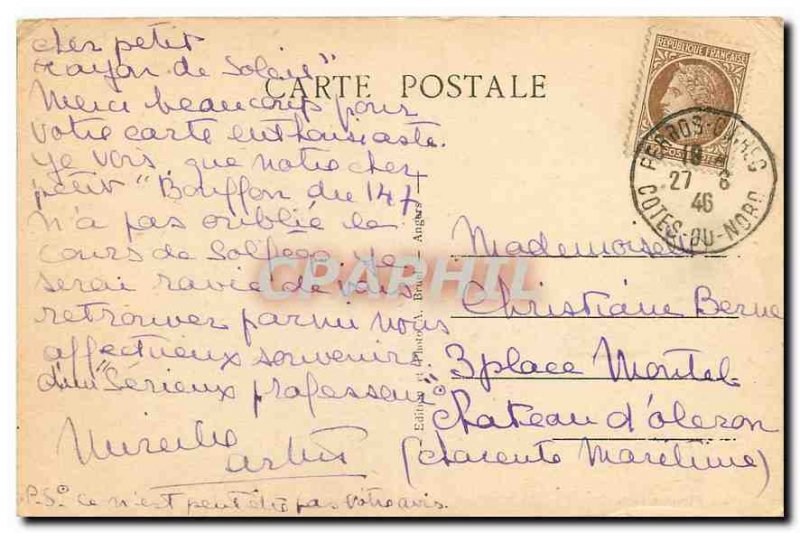 cher petit
"rayon de Soleil"
CARTE POSTALE
Merci beaucoup pour
votre carte enthousiaste.
Je vois que notre cher
petit "Bouffon du 14
n'a pas oublié le
cours de Solfège. Je
serai ravie de vous
retrouver parmi nous
affectueux souvenirs
d'un "Sérieux professeur"
Mireille
P.S. Ce n'est peut être pas votre avis.
Edition et Photo A. Bruel Angers
REPUBLIQUE FRANÇAISE
PERROS-GUIREC
18
27 8
46
COTES-DU-NORD
Mademoiselle
Christiane Berne
3 place Montel
Chateau d'oleron
(Charente Maritime)
CPAPHIL